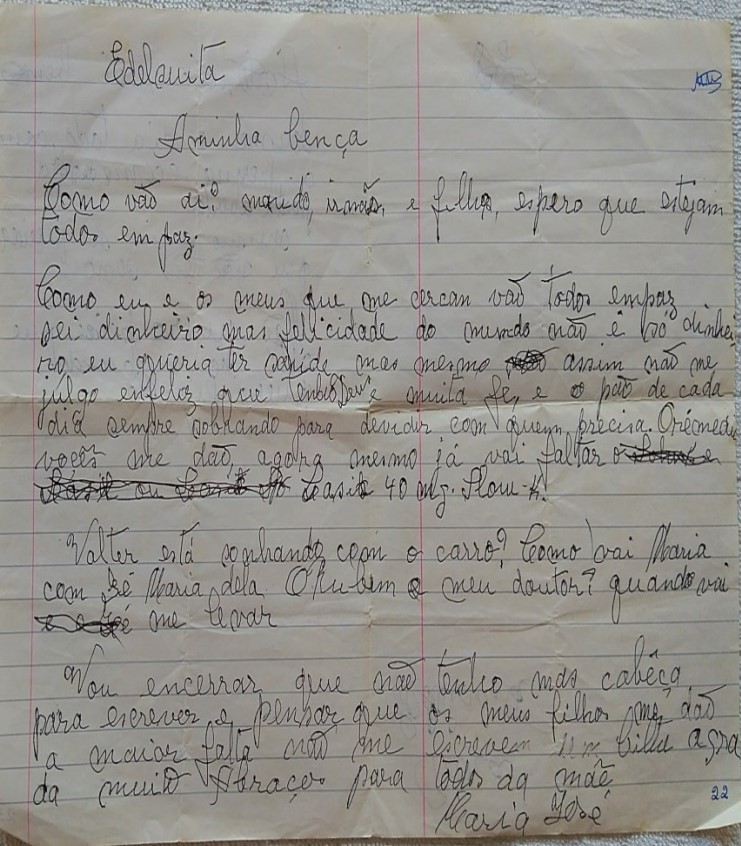 Edelzuita
Aminha bença
Como vão di? marido, irmãos, e filhos, espero que estejam
todos em paz.
Como eu e os meus que me cercan vão todos empaz
sei dinheiro mas felicidade do mundo não é só dinhei
ro, eu queria ter saúde mas mesmo assim não me
julgo enfeliz que tenho Deus e muita fé, e o pão de cada
dia sempre sobrando para devidir com quem precisa. O remedio
vocês me dão, agora mesmo já vai faltar o
Lasix 40 mg. Slow-K.
Valter está sonhando com o carro? Como vai Maria
com Zé Maria dela O Rubem o meu doutor? quando vai
me levar
Vou encerrar que não tenho mas cabêça
para escrever, e pensar que os meus filhos me dão
a maior falta não me escrevem um bilhe agra
da muito Abraços para todos da mãe
Maria José
22